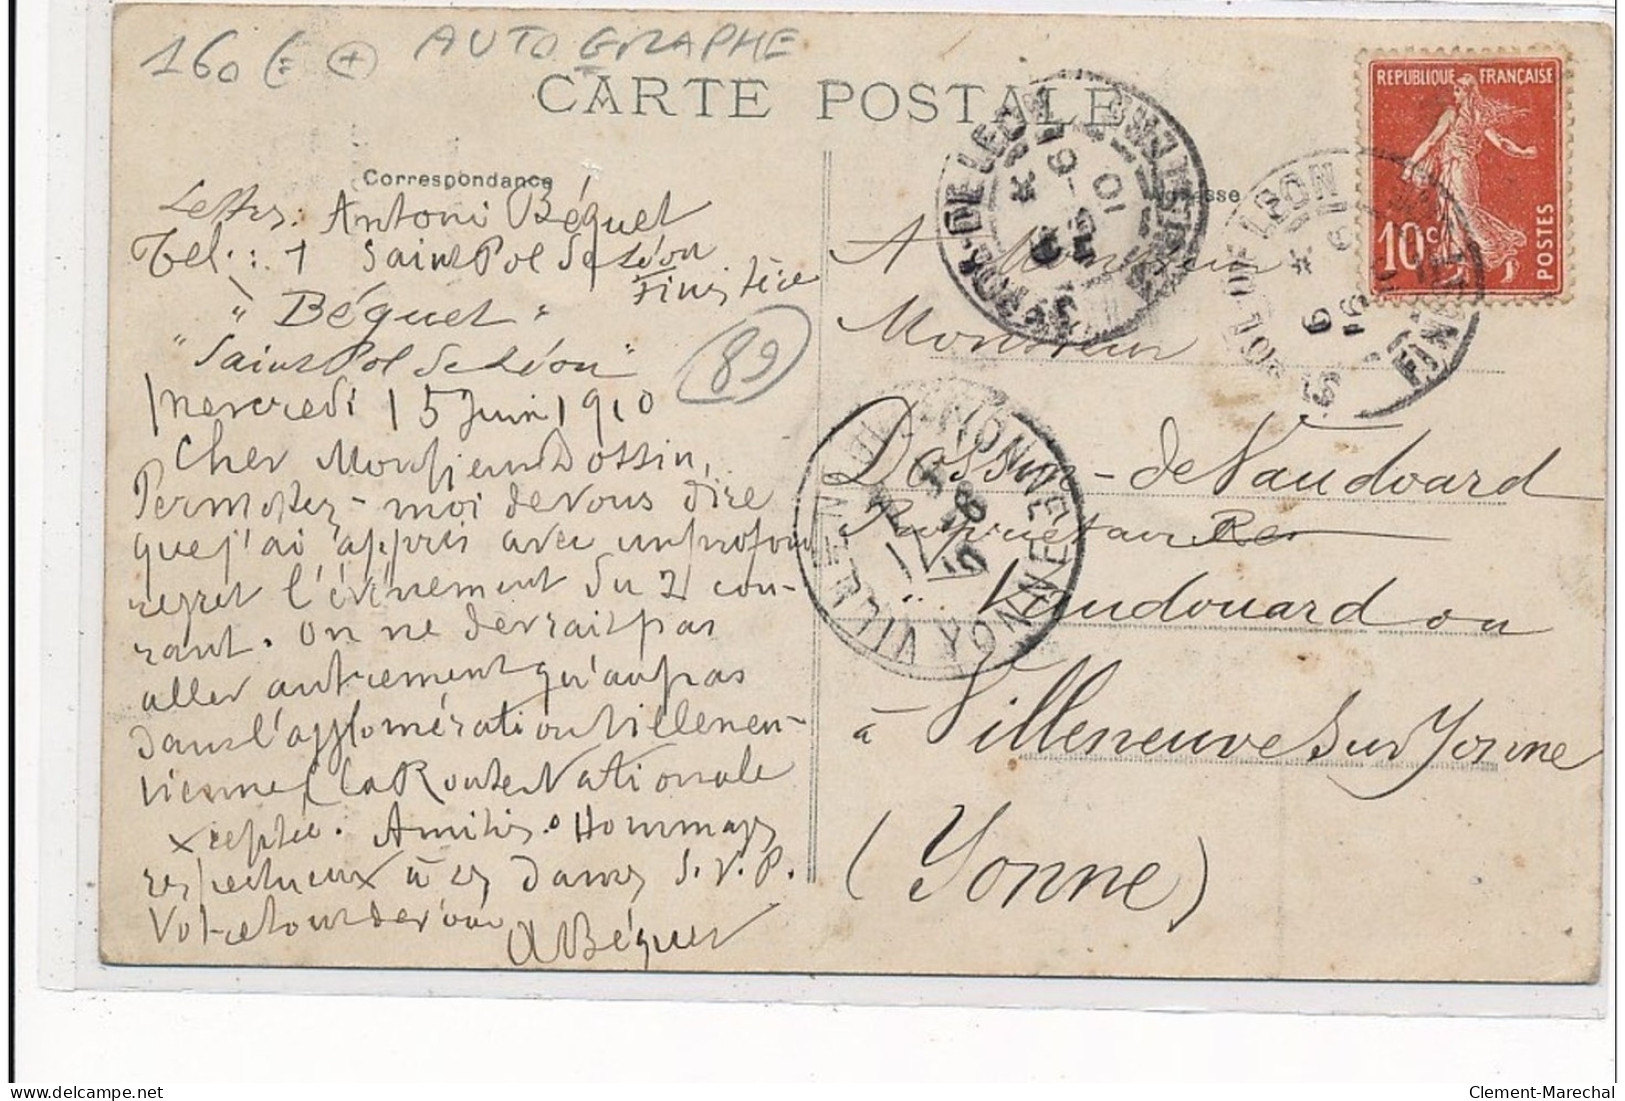 160 € + AUTOGRAPHE
CARTE POSTALE
Correspondance
Lettres: Antoni Béguet
Tel.: 1 Saint Pol de Léon
Finistère
" Béguet "
"Saint Pol de Léon"
89
Mercredi 15 Juin 1910
Cher Monsieur Dossin,
Permettez-moi de vous dire
que j'ai appris avec un profond
regret l'évènement du 2 cou-
rant. On ne devrait pas
aller autrement qu'au pas
dans l'agglomération Villeneu-
vienne, la Route Nationale
exceptée. Amitiés. Hommages
respectueux à ces Dames S.V.P.
Votre tout dévoué
A Béguet
A Monsieur
Monsieur
Dossin-de Vaudouard
Propriétaire
Vaudouard ou
à Villeneuve sur Yonne
(Yonne)
REPUBLIQUE FRANÇAISE
10c
POSTES
ST POL-DE-LEON
FINISTERE
VILLENEUVE
YONNE
Clement-Marechal